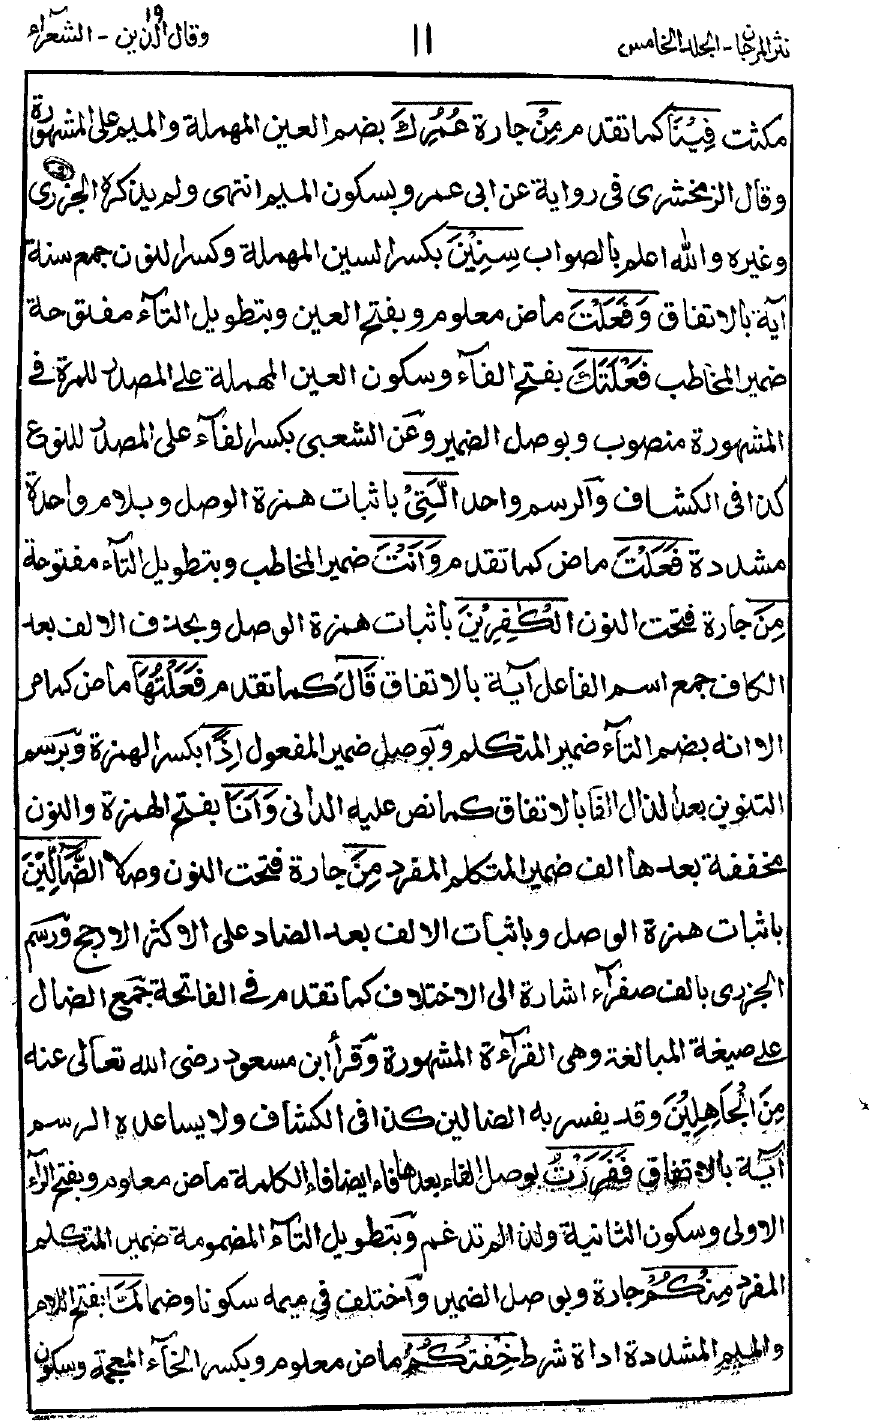 نثر المرجان - الجلد الخامس ١١ وقال الذين ١٩ - الشعرآء
مكثت فِيْنَا كما تقدم مِنْ جارة عُمُرِكَ بضم العين المهملة والميم على المشهورة
وقال الزمخشرى فى رواية عن ابى عمرو بسكون الميم انتهى ولم يذكره الجزرى
وغيره والله اعلم بالصواب سِنِيْنَ بكسر السين المهملة وكسر النون جمع سنة
آية بالاتفاق وَفَعَلْتَ ماض معلوم وبفتح العين وبتطويل التآء مفتوحة
ضمير المخاطب فَعْلَتَكَ بفتح الفآء وسكون العين المهملة على المصدر للمرة فے
المشهورة منصوب وبوصل الضمير وعن الشعبى بكسر الفآء على المصدر للنوع
كذا فى الكشاف والرسم واحد الَّتِىْ باثبات همزة الوصل وبلام واحدة
مشددة فَعَلْتَ ماض كما تقدم وَاَنْتَ ضمير المخاطب وبتطويل التآء مفتوحة
مِنَ جارة فتحت النون الْكٰفِرِيْنَ باثبات همزة الوصل وبحذف الالف بعد
الكاف جمع اسم الفاعل آية بالاتفاق قَالَ كما تقدم فَعَلْتُهَا ماض كما مر
الا انه بضم التآء ضمير المتكلم وبوصل ضمير المفعول اِذًا بكسر الهمزة وبرسم
التنوين بعد الذال الفا بالاتفاق كما نص عليه الدانى وَاَنَا بفتح الهمزة والنون
مخففة بعدها الف ضمير المتكلم المفرد مِنَ جارة فتحت النون وصلا الضَّالِّيْنَ
باثبات همزة الوصل وباثبات الالف بعد الضاد على الاكثر الارجح ورسم
الجزرى بالف صفرآء اشارة الى الاختلاف كما تقدم فے الفاتحة جمع الضال
على صيغة المبالغة وهى القرآءة المشهورة وقرأ ابن مسعود رضى الله تعالى عنه
مِنَ الْجَاهِلِيْنَ وقد يفسر به الضالين كذا فى الكشاف ولا يساعده الرسم
آية بالاتفاق فَفَرَرْتُ بوصل الفاء بعدها فاء ايضا فاء الكلمة ماض معلوم وبفتح الرآء
الاولى وسكون الثانية ولذا لم تدغم وبتطويل التآء المضمومة ضمير المتكلم
المفرد مِنْكُمْ جارة وبوصل الضمير واختلف فى ميمه سكونا وضما لَمَّا بفتح اللام
والميم المشددة اداة شرط خِفْتُكُمْ ماض معلوم وبكسر الخآء المعجمة وسكون